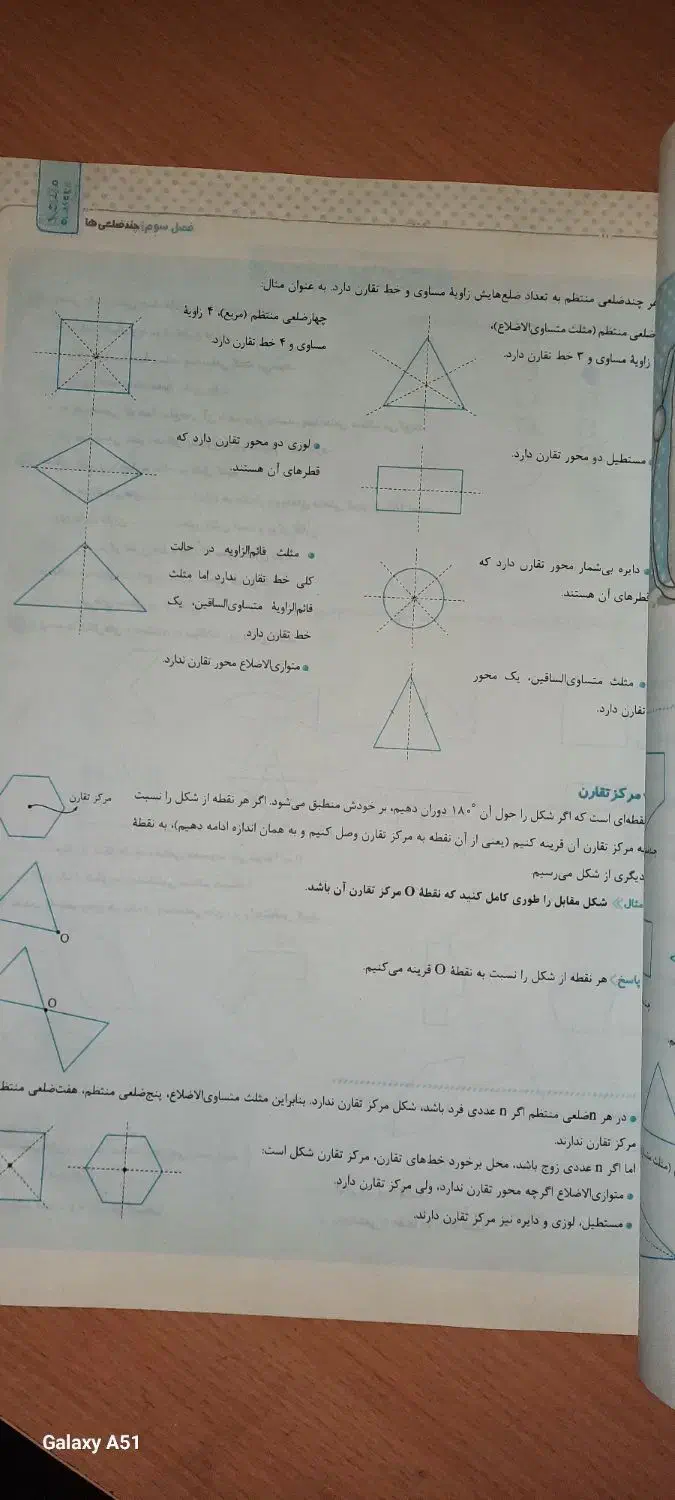 فصل سوم: چندضلعی‌ها
هر چندضلعی منتظم به تعداد ضلع‌هایش زاویهٔ مساوی و خط تقارن دارد. به عنوان مثال:
ضلعی منتظم (مثلث متساوی‌الاضلاع)،
زاویهٔ مساوی و ۳ خط تقارن دارد.
چهارضلعی منتظم (مربع)، ۴ زاویهٔ
مساوی و ۴ خط تقارن دارد.
مستطیل دو محور تقارن دارد.
● لوزی دو محور تقارن دارد که
قطرهای آن هستند.
● دایره بی‌شمار محور تقارن دارد که
قطرهای آن هستند.
● مثلث قائم‌الزاویه در حالت
کلی خط تقارن ندارد اما مثلث
قائم‌الزاویهٔ متساوی‌الساقین، یک
خط تقارن دارد.
● متوازی‌الاضلاع محور تقارن ندارد.
● مثلث متساوی‌الساقین، یک محور
تقارن دارد.
مرکز تقارن
نقطه‌ای است که اگر شکل را حول آن ۱۸۰° دوران دهیم، بر خودش منطبق می‌شود. اگر هر نقطه از شکل را نسبت
به مرکز تقارن آن قرینه کنیم (یعنی از آن نقطه به مرکز تقارن وصل کنیم و به همان اندازه ادامه دهیم)، به نقطهٔ
دیگری از شکل می‌رسیم
مرکز تقارن
مثال» شکل مقابل را طوری کامل کنید که نقطهٔ O مرکز تقارن آن باشد.
O
پاسخ» هر نقطه از شکل را نسبت به نقطهٔ O قرینه می‌کنیم.
O
● در هر nضلعی منتظم اگر n عددی فرد باشد، شکل مرکز تقارن ندارد. بنابراین مثلث متساوی‌الاضلاع، پنج‌ضلعی منتظم، هفت‌ضلعی
مرکز تقارن ندارند.
اما اگر n عددی زوج باشد، محل برخورد خط‌های تقارن، مرکز تقارن شکل است:
● متوازی‌الاضلاع اگرچه محور تقارن ندارد، ولی مرکز تقارن دارد.
● مستطیل، لوزی و دایره نیز مرکز تقارن دارند.
Galaxy A51